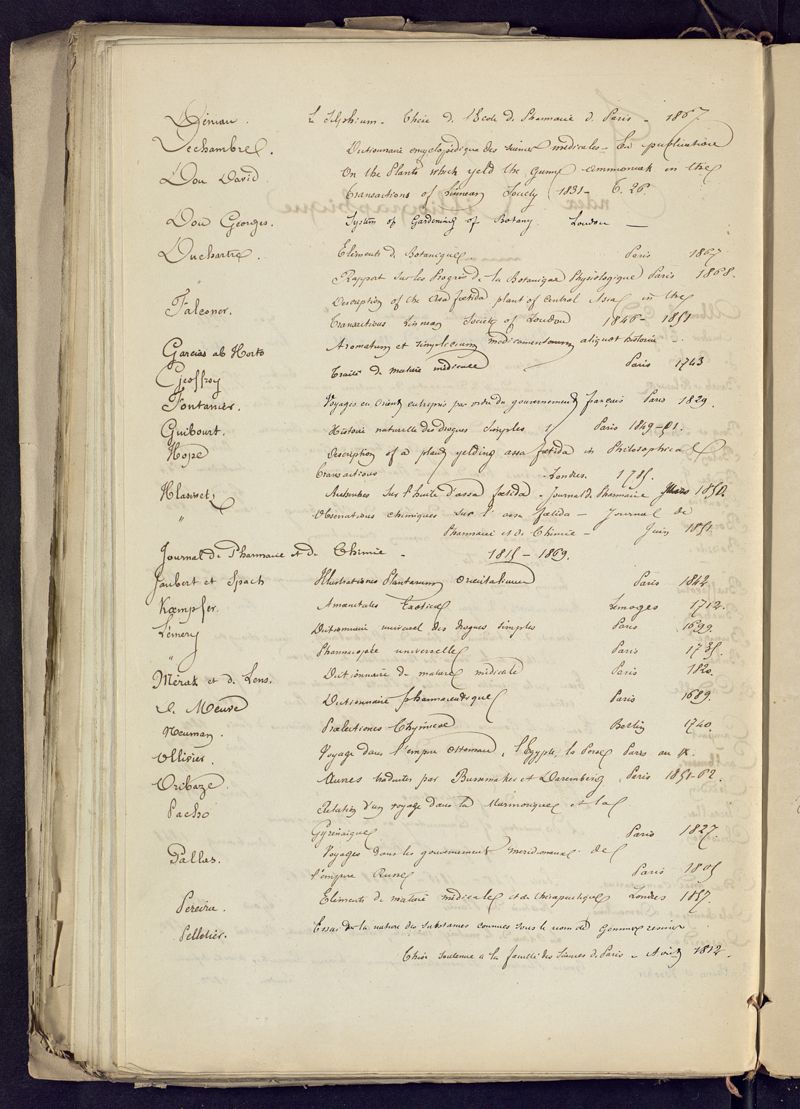 Déniau. Le Silphium. Thèse de l'Ecole de Pharmacie de Paris - 1867.
Dechambre. Dictionnaire encyclopédique des sciences médicales - En publication
Don David On the Plants which yeld the Gum ammoniak in the
Transactions of Linnean Society (1831 - 6. 26.
Don Georges. System of Gardening of Botany. London —
Duchartre. Elements de Botanique Paris 1867
" Rapport sur les Progrès de la Botanique Physiologique Paris 1868.
Falconer. Description of the Asa foetida plant of central Asia in the
Transactions Linnean Society of London 1846 - 1851
Garcias ab Horto Aromatum et simplicium medicamentorum aliquot historia.
Geoffroy Traité de matière médicale Paris 1743
Fontanier. Voyages en Orient entrepris par ordre du gouvernement français Paris 1829.
Guibourt. Histoire naturelle des drogues simples Paris 1849-51.
Hope Description of a plant yelding assa foetida in Philosophical
Transactions Londres. 1785.
Hlasiwetz Recherches sur l'huile d'assa foetida. Journal de Pharmacie Mars 1850.
" Observations chimiques sur l'assa foetida — Journal de
Pharmacie et de Chimie - Juin 1851
Journal de Pharmacie et de Chimie - 1815 - 1869.
Jaubert et Spach Illustrationes Plantarum orientalium Paris 1842
Kæmpfer. Amœnitates Exoticæ Lemgoes 1712.
Lémery Dictionnaire universel des drogues simples Paris 1699.
" Pharmacopée universelle Paris 1735.
Mérat et de Lens. Dictionnaire de matière médicale Paris 1820.
de Meuve Dictionnaire pharmaceutique Paris 1689.
Neuman. Prælectiones Chymicæ Berlin 1740.
Ollivier. Voyage dans l'empire Ottoman, l'Egypte, la Perse Paris an IX.
Oribaze. Œuvres traduites par Bussemaker et Daremberg, Paris 1851-62.
Pacho Relation d'un voyage dans la Marmorique et la
Cyrénaique Paris 1827.
Pallas. Voyages dans les gouvernements méridionaux de
l'empire Russe Paris 1805
Pereira. Elements de matière médicale et de thérapeutique Londres 1857.
Pelletier. Essai sur la nature des substances connues sous le nom de Gommes résines
Thèse soutenue à la faculté des Sciences de Paris - Avril 1812.